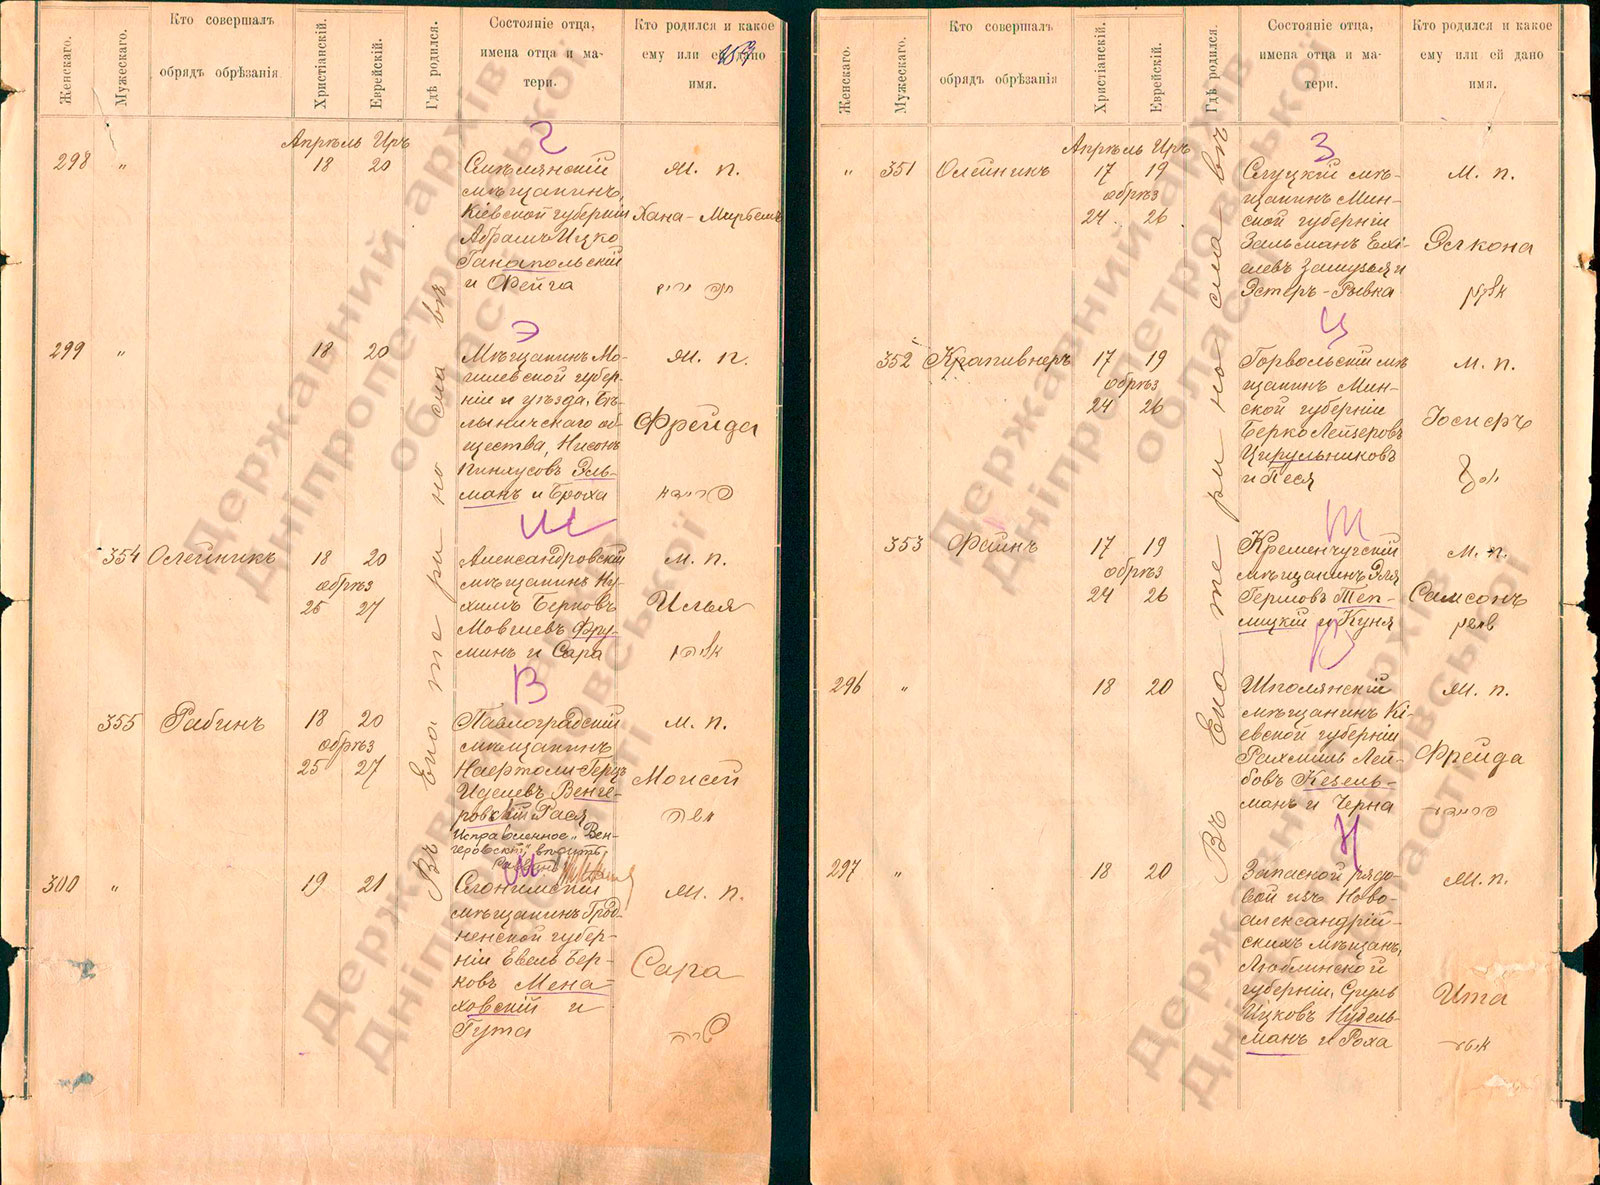 Женскаго.
Мужескаго.
Кто совершалъ
обрядъ обрѣзанія
Христіанскій.
Еврейскій.
Гдѣ родился.
Состояніе отца,
имена отца и ма-
тери.
Кто родился и какое
ему или ей дано
имя.
Апрѣль Иръ
298 " 18 20
Смѣлянскій
мѣщанинъ,
Кіевской губерніи
Абрамъ Ицко
Ганапольскій
и Фейга
М. п.
Хана-
299 " 18 20
Мѣщанинъ Мо-
гилевской губер-
ніи и уѣзда, Бѣ-
лыничскаго об-
щества, Нисонъ
Пинхусовъ Эль-
манъ и Броха
М. п.
Фрейда
פריידא
354 Олейникъ 18 20
обрѣз
25 27
Александровскій
мѣщанинъ Ну-
химъ Берковъ
Мовшевъ Фру-
минъ и Сара
М. п.
Илья
355 Рабинъ 18 20
обрѣз
25 27
Павлоградскій
мѣщанинъ
Нафтоли-Герцъ
Иделевъ Венге-
ровскій Рася
Исправленное „Вен-
геровскій“ вѣрить,
М. п.
Моисей
משה
300 " 19 21
Слонимскій
мѣщанинъ Грод-
ненской губер-
ніи Евель Бер-
ковъ Мена-
ховскій и
Гута
М. п.
Сара
שרה
Въ Екатеринославѣ
Г
Э
Ш
В
М
Женскаго.
Мужескаго.
Кто совершалъ
обрядъ обрѣзанія
Христіанскій.
Еврейскій.
Гдѣ родился.
Состояніе отца,
имена отца и ма-
тери.
Кто родился и какое
ему или ей дано
имя.
Апрѣль Иръ
" 351 Олейникъ 17 19
обрѣз
24 26
Слуцкій мѣ-
щанинъ Мин-
ской губерніи
Зальманъ Ехі-
елевъ
Эстеръ-Рывка
М. п.
352 Крапивнеръ 17 19
обрѣз
24 26
Горвольскій мѣ
щанинъ Мин-
ской губерніи
Берко Лейзеровъ
Цирульниковъ
и Песя
М. п.
Іосифъ
353 Файнъ 17 19
обрѣз
24 26
Кременчугскій
мѣщанинъ Эля
Гершовъ Теп-
лицкій и Куня
М. п.
Самсонъ
296 " 18 20
Шполянскій
мѣщанинъ Кі-
евской губерніи
Рахмиль Лей-
бовъ Кезель-
манъ и Черна
М. п.
Фрейда
297 " 18 20
Запасной рядо-
вой изъ Ново-
александрій-
скихъ мѣщанъ,
Люблинской
губерніи, Сруль
Ицковъ Нудель-
манъ и Роха
М. п.
Ита
Въ Екатеринославѣ
З
Ц
Н
Державний архів
Дніпропетровської
області